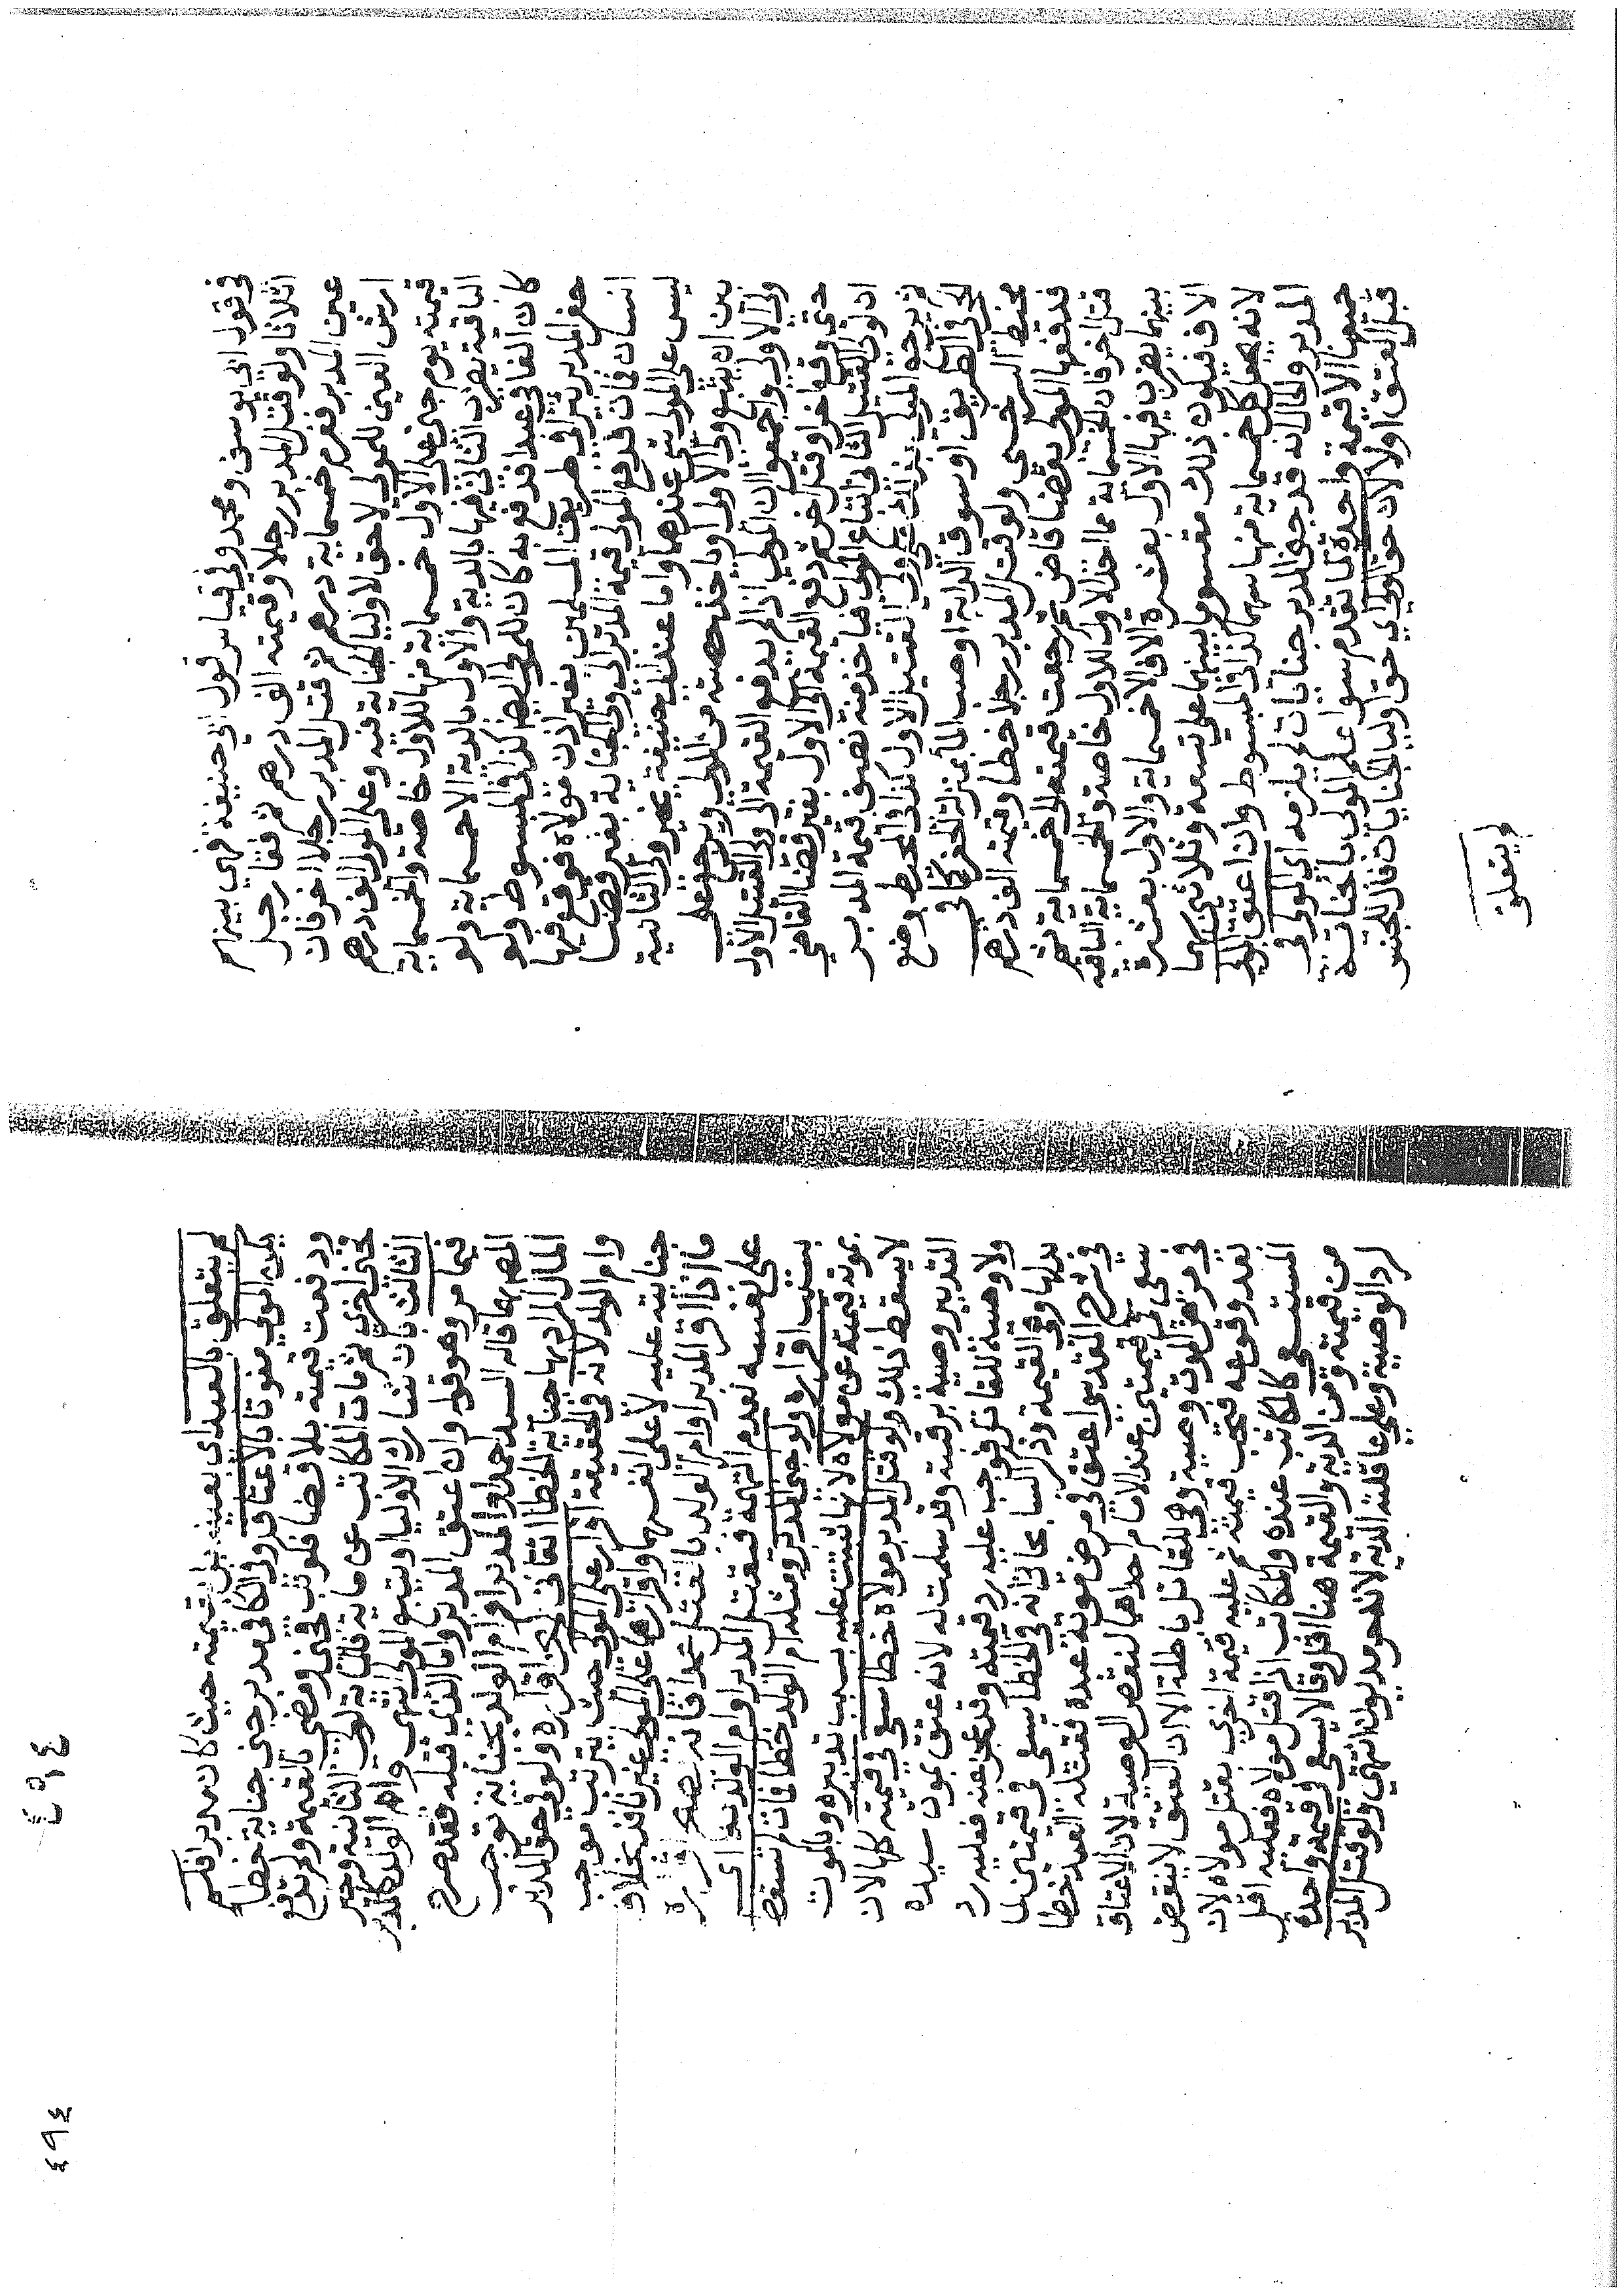 في قول ابي يوسف ومحمد وفي قياس قول ابي حنيفة فهي بينهم
اثلاثا ولو قتل المدبر رجلا وقيمته الف درهم ثم فقا رجل
عين المدبر فغرم خمسماية درهم ثم قتل المدبر رجلا اخر فان
ارش العين للمولى لا حق لاوليا الجناية فيه وعلى المولى الف درهم
قيمته يوم جنى على الاول خمسماية منها للاول خاصة والخمسماية
الباقية يضرب الثاني فيها بالدية والاول بالدية الا خمسماية ولو
كان الفاقي عبدا فدفع به كان للمولى ايضا كذا في المبسوط ولو
حفر المدبر بيرا في طريق المسلمين بغير اذن مولاه فوقع فيها
انسان فمات فدفع المولى قيمة المدبر الى ولي الجناية بغير قضا
ليس على المولى شي عندهما واما عند ابي حنيفة يخير ولي الثانية
بين ان يتبع ولي الاولى او ياخذ حصته من المولى ويرجع على
ولي الاولى واجمعوا ان المولى اذا لم يدفع القيمة الى ولي القتيل الاول
حتى وقع اخر او قتل اخر ثم دفع القيمة الى الاول بغير قضا القاضي
ان لولي القتيل الثاني اتباع المولى فياخذ منه نصف قيمة المدبر
ثم يرجع المولى بذلك على ولي القتيل الاول كذا في المحيط وضع
الحجر في الطريق او سوق الدابة او صب الماء بمنزلة الحفر كما في
محيط السرخسي ولو قتل المدبر رجلا خطا وقيمته الف درهم
فدفعها المولى بقضا قاض ثم رجعت قيمته الى خمسماية ثم
قتل اخر فان الخمسماية مما اخذ الاول للاول خاصة والخمسماية الباقية
بينهما يضرب فيها الاول بعشرة الاف الا خمسماية والاول بعشرة
الاف فيكون ذلك مقسوما بينهما على تسعة وثلاثين سهما
لانه يجعل كل خمسماية منها سهما كذا في المبسوط وان اعتق المولى
المدبر والحال انه قد جنى المدبر جنايات لم يلزمه اي المولى في
جميعها الا قيمة واحدة لما تقدم سوا علم المولى بالجنايات
قبل العتق او لا لان حق الولي اي حق اوليا الجنايات فال للجنس
لم يتعلق
لم يتعلق بالعبد اي بعينه بل بقيمته حيث كان مدبرا فلم
يكن المولى مفوتا بالاعتاق وفي الكافي مدبر جنى جناية خطا
ودفعت قيمته بلا قضا فكوتب فجنى وقضي بالقيمة ولم تدفع
فجنى اخرى ثم مات المكاتب عن ماية فالماية لولي الثانية وخير
الثالث بان شارك الاوليا ويتبع المولى انتهى وام الولد كالمدبر
فيما مر وهو قوله وان اعتق المدبر واما الذي قبله فقد صرح
المص بها قاله السيد احمد ولو اقر المدبر او ام الولد بجناية توجب
المال المراد بها جناية الخطا اتقاني لم يجز اقراره ولو في حق المدبر
وام الولد لانه في الحقيقة اقرار على المولى حيث يترتب موجب
جنايته عليه لا على نفسهما واقرارهما على المولى غير نافذ بخلاف
ما اذا اقر المدبر او ام الولد بالقتل عمدا فانه يصح اقراره
على نفسه لعدم التهمة فيقتل المدبر او ام الولد به اي
بسبب اقراره ولو جنى المدبر ومثله ام الولد خطا فمات لم تسقط
بموته قيمته عن مولاه لانها تثبت عليه بسبب تدبيره وبالموت
لا يسقط ذلك ولو قتل المدبر مولاه خطا سعى في قيمته كلها لان
التدبير وصية برقبته وقد سلمت له لانه عتق بموت سيده
ولا وصية للقاتل فوجب عليه رد قيمته وقد عجز عنه فعليه رد
بدلها وهو القيمة وذكر السائحاني انه في الخطا يسعى في قيمتين لما
في شرح المقدسي اعتق في مرض موته عبده فقتله العبد خطا
سعى في قيمتين عند الامام احداهما لنقض الوصية لان الاعتاق
في مرض الموت وصية وهي للقاتل باطلة الا ان العتق لا ينقض
بعد وقوعه فتجب قيمته ثم عليه قيمة اخرى بقتل مولاه لان
المستسعى كالمكاتب عنده والمكاتب اذا قتل مولاه فعليه اقل
من قيمته ومن الدية والقيمة هنا اقل وقالا يسعى في قيمة واحدة
لرد الوصية وعلى عاقلته الدية لانه حر مديون انتهى ولو قتل المدبر
٤٩٤